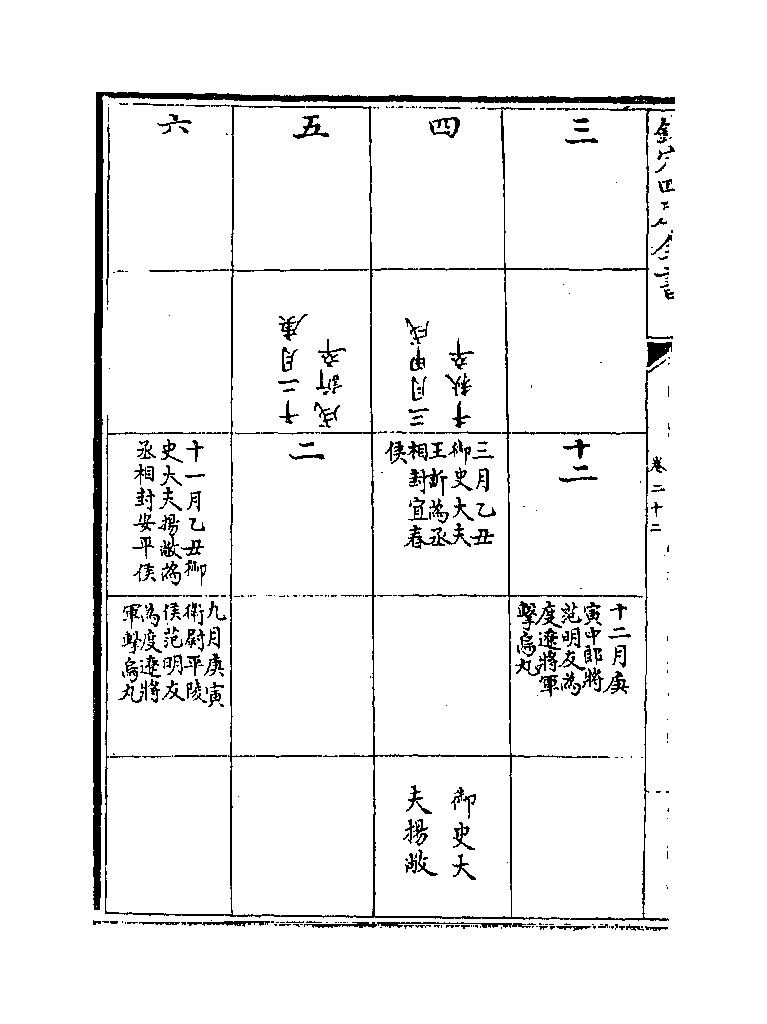 欽定四庫全書
卷二十二
三
十二
十二月庚
寅中郎將
范明友為
度遼將軍
擊烏丸
四
三月甲戌
千秋卒
三月乙丑
御史大夫
王訢為丞
相封宜春
侯
御史大
夫揚敞
五
十二月庚
戌訢卒
二
六
十一月乙丑御
史大夫揚敞為
丞相封安平侯
九月庚寅
衛尉平陵
侯范明友
為度遼將
軍擊烏丸